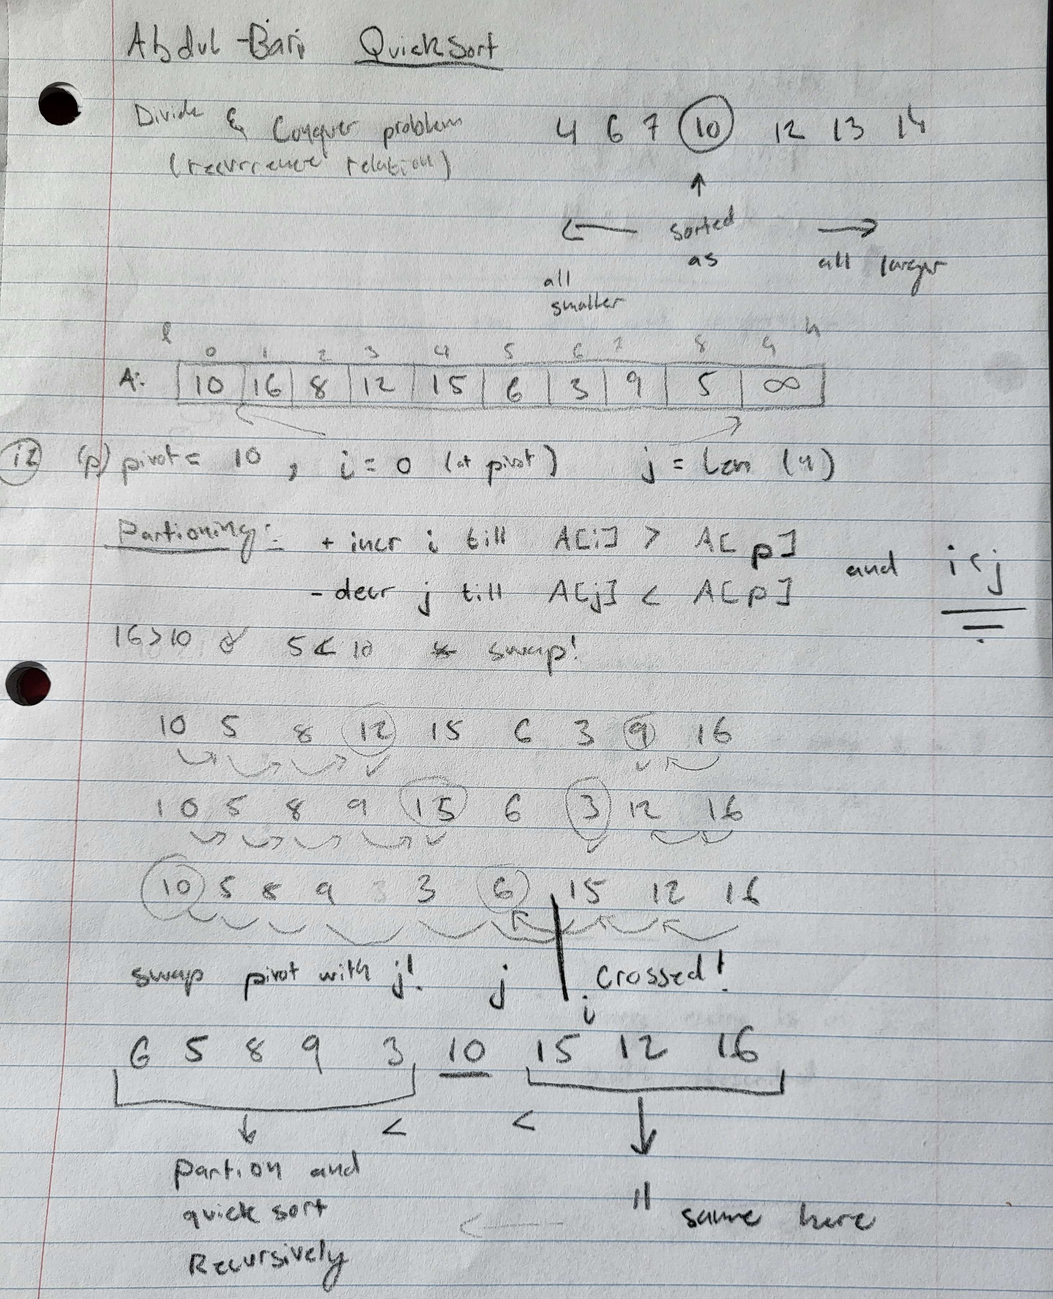 Abdul-Bari QuickSort
Divide & Conquer problem
(recurrence relation)
4 6 7 10 12 13 14
↑
← sorted →
as
all larger
all
smaller
l 0 1 2 3 4 5 6 7 8 9 h
A: 10 16 8 12 15 6 3 9 5 ∞
(p) pivot = 10 , i = 0 (at pivot) j = Len (9)
Partioning: + incr i till A[i] > A[p]
and i<j
- decr j till A[j] < A[p]
16>10 5<10 swap!
10 5 8 12 15 6 3 9 16
10 5 8 9 15 6 3 12 16
10 5 8 9 3 3 6 15 12 16
swap pivot with j! j crossed!
i
6 5 8 9 3 10 15 12 16
< <
Partion and
quick sort
Recursively
" same here